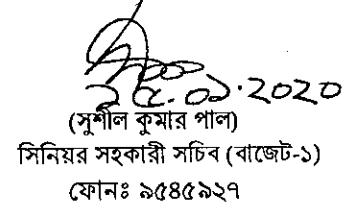 ২৫.০১.2020
(সুশীল কুমার পাল)
সিনিয়র সহকারী সচিব (বাজেট-১)
ফোনঃ ৯৫৪৫৯২৭